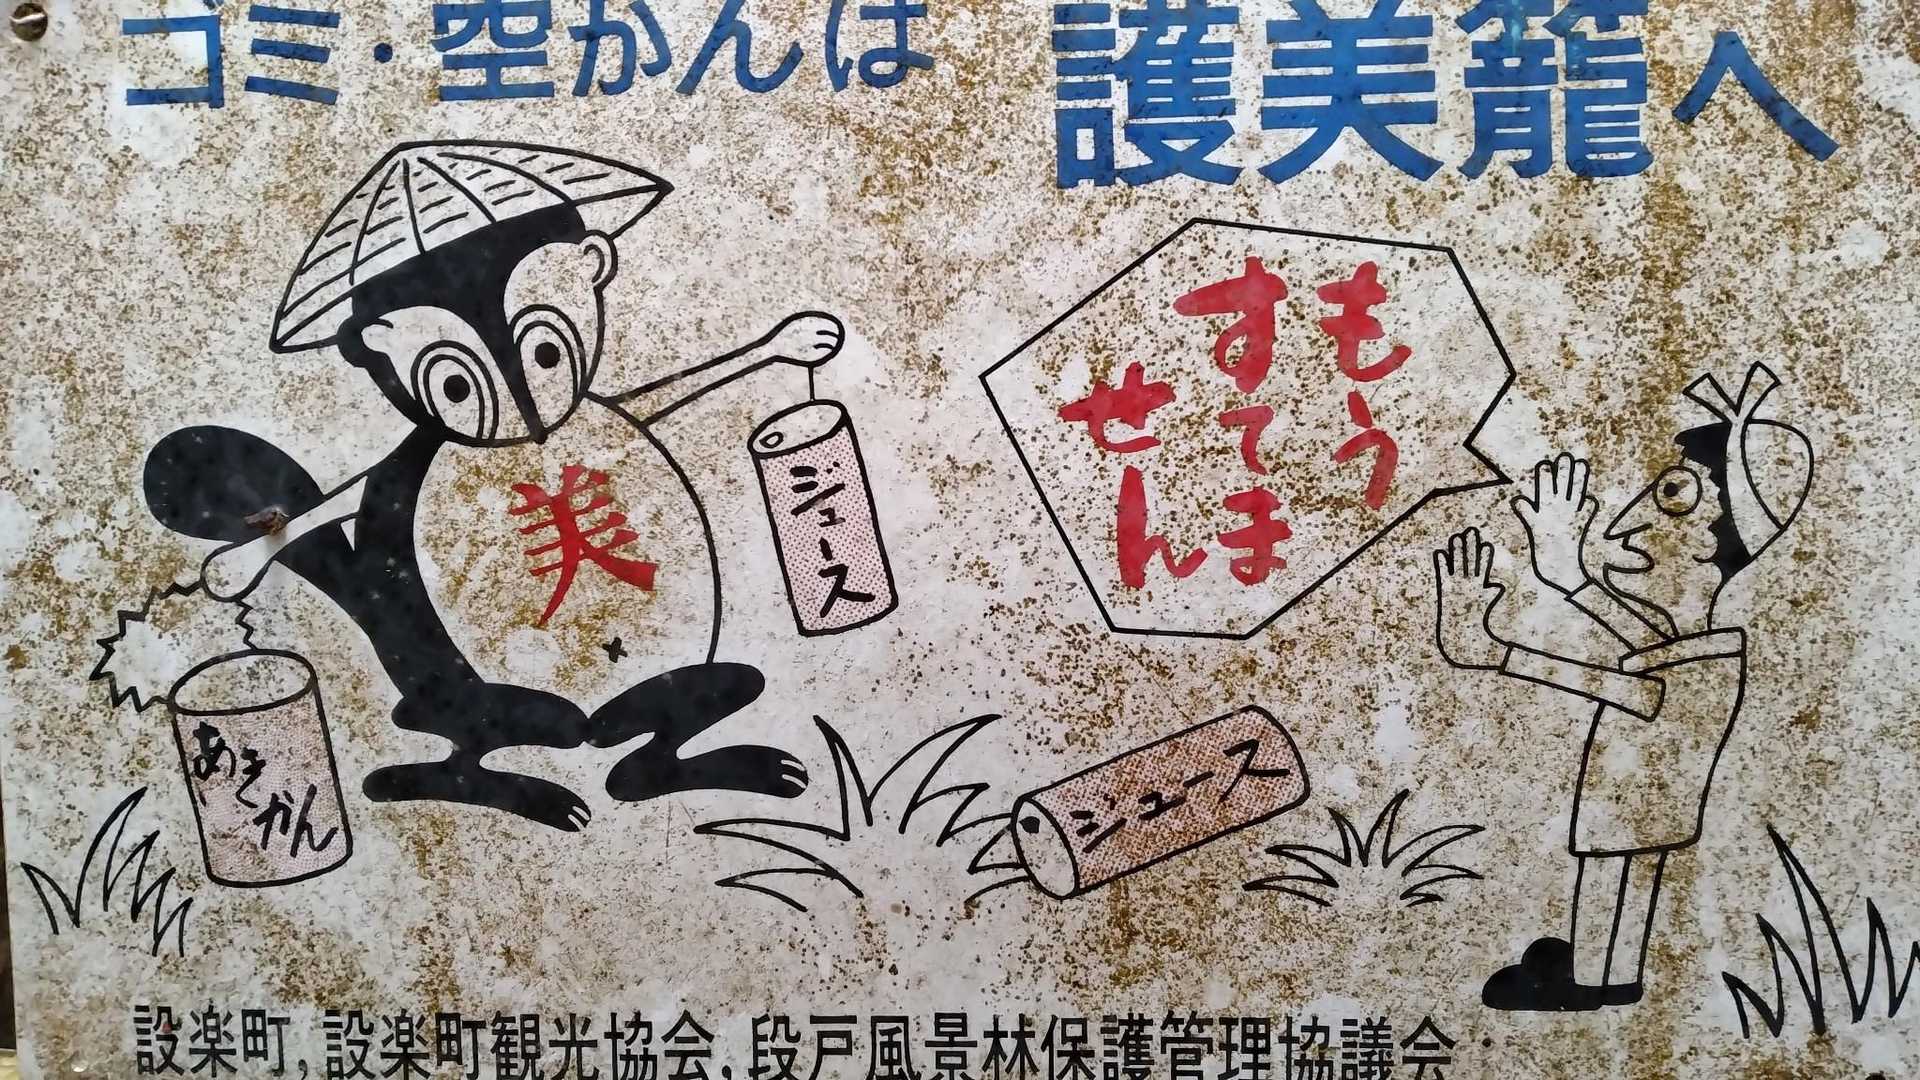 ゴミ・空かんは 護美籠へ
もう
すてま
せん
美
ジュース
あき
かん
ジュース
設楽町,設楽町観光協会,段戸風景林保護管理協議会